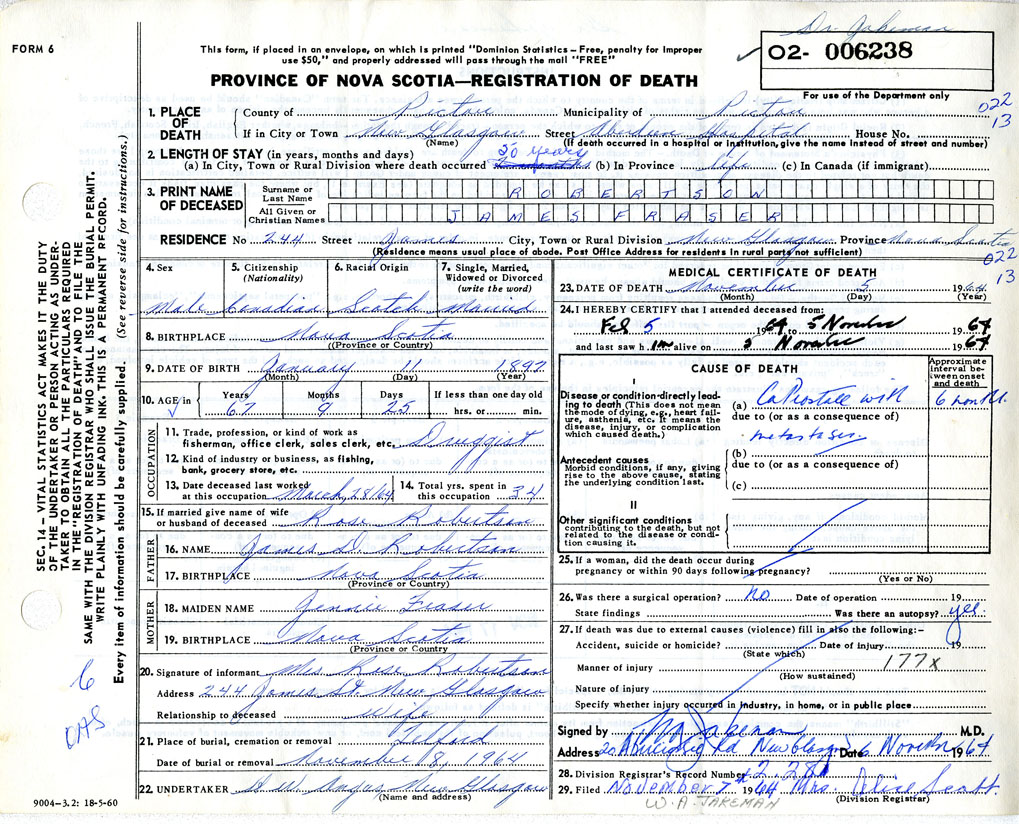 Dr. Jakeman
FORM 6
This form, if placed in an envelope, on which is printed "Dominion Statistics – Free, penalty for improper
use $50," and properly addressed will pass through the mail "FREE"
02- 006238
PROVINCE OF NOVA SCOTIA—REGISTRATION OF DEATH
For use of the Department only
022
13
1. PLACE OF DEATH
County of Pictou Municipality of Pictou
If in City or Town New Glasgow Street Aberdeen Hospital House No.
(Name) (If death occurred in a hospital or institution, give the name instead of street and number)
2. LENGTH OF STAY (in years, months and days) 50 years
(a) In City, Town or Rural Division where death occurred (b) In Province Life (c) In Canada (if immigrant)
3. PRINT NAME OF DECEASED
Surname or Last Name ROBERTSON
All Given or Christian Names JAMES FRASER
RESIDENCE No 244 Street James City, Town or Rural Division New Glasgow Province Nova Scotia
(Residence means usual place of abode. Post Office Address for residents in rural parts not sufficient)
022
13
4. Sex 5. Citizenship (Nationality) 6. Racial Origin 7. Single, Married, Widowed or Divorced (write the word)
Male Canadian Scotch Married
8. BIRTHPLACE Nova Scotia
(Province or Country)
9. DATE OF BIRTH January 11 1897
(Month) (Day) (Year)
10. AGE in Years Months Days If less than one day old
67 9 25 hrs. or min.
OCCUPATION
11. Trade, profession, or kind of work as
fisherman, office clerk, sales clerk, etc. Druggist
12. Kind of industry or business, as fishing,
bank, grocery store, etc.
13. Date deceased last worked at this occupation March, 28/64
14. Total yrs. spent in this occupation 34
15. If married give name of wife
or husband of deceased Rose Robertson
FATHER
16. NAME James D. Robertson
17. BIRTHPLACE Nova Scotia
(Province or Country)
MOTHER
18. MAIDEN NAME Jennie Fraser
19. BIRTHPLACE Nova Scotia
(Province or Country)
20. Signature of informant Mrs Rose Robertson
Address 244 James St New Glasgow
Relationship to deceased Wife
21. Place of burial, cremation or removal Telford
Date of burial or removal November 8, 1964
22. UNDERTAKER D. W. Angus New Glasgow
(Name and address)
MEDICAL CERTIFICATE OF DEATH
23. DATE OF DEATH November 5 1964
(Month) (Day) (Year)
24. I HEREBY CERTIFY that I attended deceased from:
Feb 5 1964 to 5 November 1964
and last saw him alive on 5 November 1964
CAUSE OF DEATH
Approximate interval between onset and death
I
Disease or condition directly leading to death (This does not mean the mode of dying, e.g., heart failure, asthenia, etc. It means the disease, injury, or complication which caused death.)
(a) Ca Prostate with 6 months
due to (or as a consequence of)
metastases
(b)
due to (or as a consequence of)
(c)
Antecedent causes
Morbid conditions, if any, giving rise to the above cause, stating the underlying condition last.
II
Other significant conditions
contributing to the death, but not related to the disease or condition causing it.
25. If a woman, did the death occur during
pregnancy or within 90 days following pregnancy?
(Yes or No)
26. Was there a surgical operation? no Date of operation 19
State findings Was there an autopsy? yes
27. If death was due to external causes (violence) fill in also the following:–
Accident, suicide or homicide? Date of injury 19
(State which)
177x
Manner of injury
(How sustained)
Nature of injury
Specify whether injury occurred in industry, in home, or in public place
Signed by Jakeman M.D.
Address New Glasgow Date 6 November 1964
28. Division Registrar's Record Number 228
29. Filed November 7th 1964 Mrs. Alice Scott
(Division Registrar)
W. A. JAKEMAN
SEC. 14 – VITAL STATISTICS ACT MAKES IT THE DUTY
OF THE UNDERTAKER OR PERSON ACTING AS UNDER-
TAKER TO OBTAIN ALL THE PARTICULARS REQUIRED
IN THE "REGISTRATION OF DEATH" AND TO FILE THE
SAME WITH THE DIVISION REGISTRAR WHO SHALL ISSUE THE BURIAL PERMIT.
WRITE PLAINLY WITH UNFADING INK. THIS IS A PERMANENT RECORD.
Every item of information should be carefully supplied. (See reverse side for instructions.)
6
OAS
9004–3.2: 18-5-60